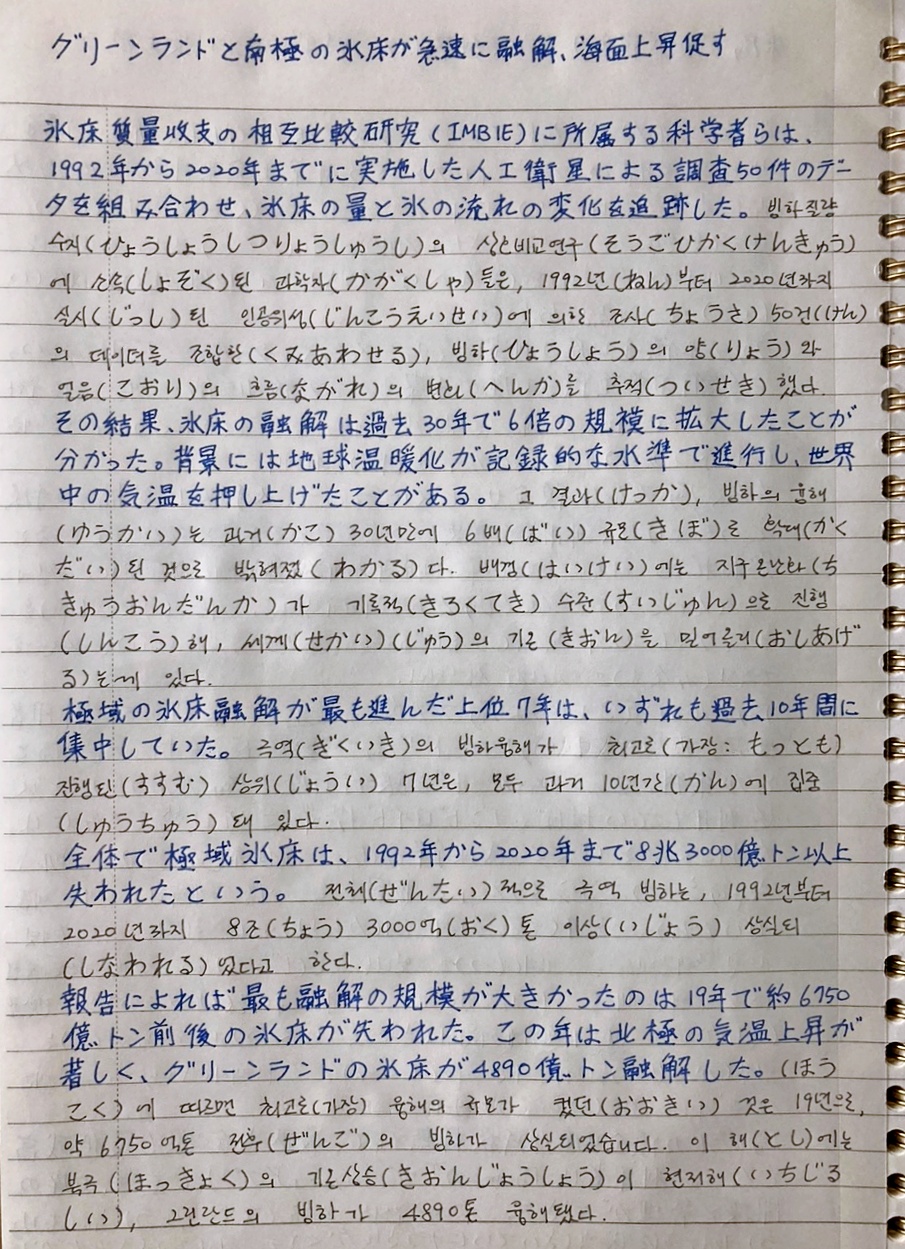 グリーンランドと南極の氷床が急速に融解、海面上昇促す
氷床質量収支の相互比較研究(IMBIE)に所属する科学者らは、
1992年から2020年までに実施した人工衛星による調査50件のデー
タを組み合わせ、氷床の量と氷の流れの変化を追跡した。 빙하질량
수지(ひょうしょうしつりょうしゅうし)의 상호비교연구(そうごひかくけんきゅう)
에 소속(しょぞく)된 과학자(かがくしゃ)들은, 1992년(ねん)부터 2020년까지
실시(じっし)된 인공위성(じんこうえいせい)에 의한 조사(ちょうさ) 50건(けん)
의 데이터를 조합한(くみあわせる), 빙하(ひょうしょう)의 양(りょう)와
얼음(こおり)의 흐름(ながれ)의 변화(へんか)를 추적(ついせき)했다.
その結果、氷床の融解は過去30年で6倍の規模に拡大したことが
分かった。背景には地球温暖化が記録的な水準で進行し、世界
中の気温を押し上げたことがある。 그 결과(けっか), 빙하의 융해
(ゆうかい)는 과거(かこ) 30년만에 6배(ばい) 규모(きぼ)로 확대(かく
だい)된 것으로 밝혀졌(わかる)다. 배경(はいけい)에는 지구온난화(ち
きゅうおんだんか)가 기록적(きろくてき) 수준(すいじゅん)으로 진행
(しんこう)해, 세계(せかい)(じゅう)의 기온(きおん)을 밀어올려(おしあげ
る)는게 있다.
極域の氷床融解が最も進んだ上位7年は、いずれも過去10年間に
集中していた。 극역(ぎくいき)의 빙하융해가 최고로(가장: もっとも)
진행된(すすむ) 상위(じょうい) 7년은, 모두 과거 10년간(かん)에 집중
(しゅうちゅう)돼 있다.
全体で極域氷床は、1992年から2020年まで8兆3000億トン以上
失われたという。 전체(ぜんたい)적으로 극역 빙하는, 1992년부터
2020년까지 8조(ちょう) 3000억(おく)톤 이상(いじょう) 상실되
(しなわれる)었다고 한다.
報告によれば最も融解の規模が大きかったのは19年で約6750
億トン前後の氷床が失われた。この年は北極の気温上昇が
著しく、グリーンランドの氷床が4890億トン融解した。(ほう
こく)에 따르면 최고로(가장) 융해의 규모가 컸던(おおきい) 것은 19년으로,
약 6750억톤 전후(ぜんご)의 빙하가 상실되었습니다. 이 해(とし)에는
북극(ほっきょく)의 기온상승(きおんじょうしょう)이 현저해(いちじる
しい), 그린란드의 빙하가 4890톤 융해됐다.